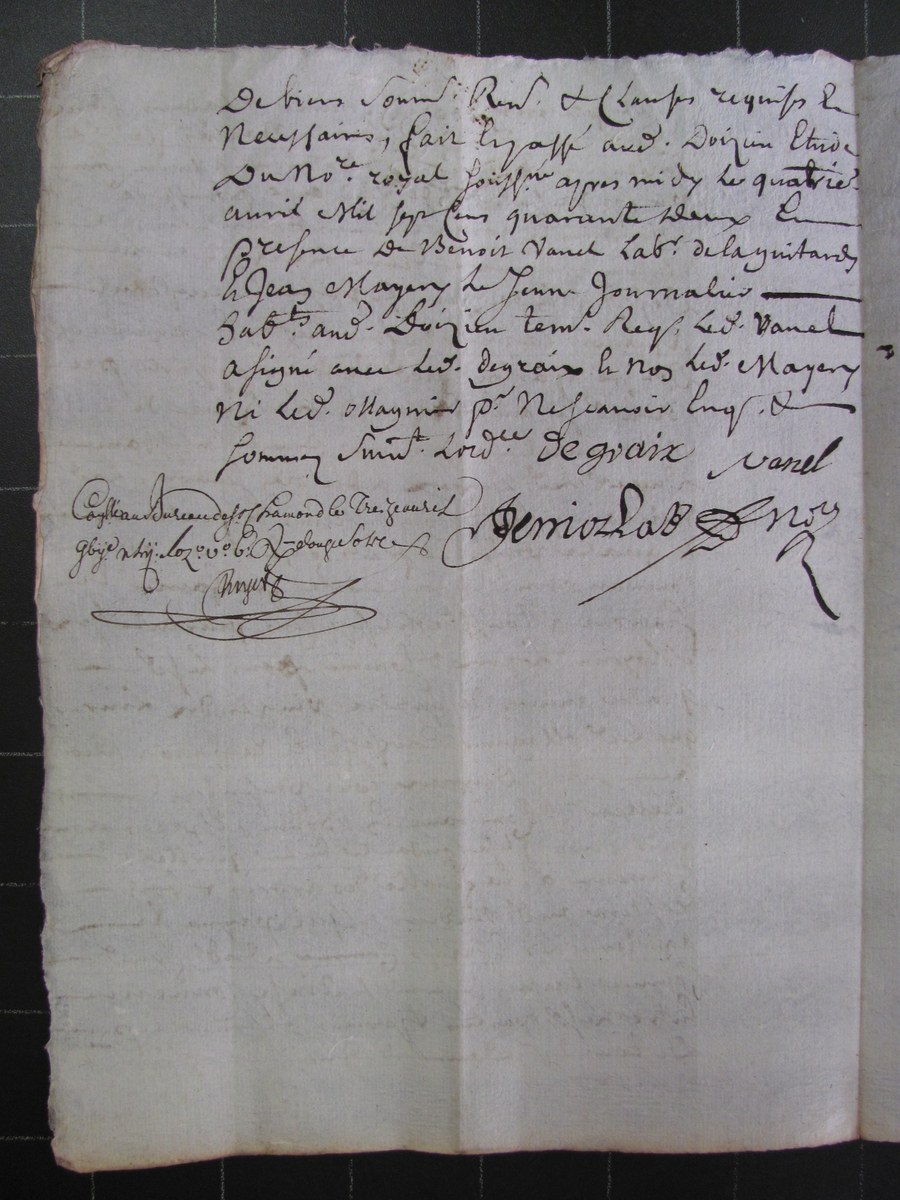 De biens soum.ns Ren.ns & Clauses requises Et
Necessaires, fait Et passé aud. Doizieu Etude
Du No.re royal soussigné apres midy Le quatrie.
avril Mil sept Cens quarante deux En
presence De Benoit Vanel Lab.r de laguitardy
Et Jean Mayery Le Jeune Journalier
hab.ts aud. Doizieu tem. Req. Led. Vanel
a signé avec Led. degraix Et non Led. Mayery
Ni Led. Magnier p.r Ne scavoir Enq. &
sommez Suiv.t Lord.ce Degraix Vanel
au Bureau de St Chamond le Treize avril
douze sols